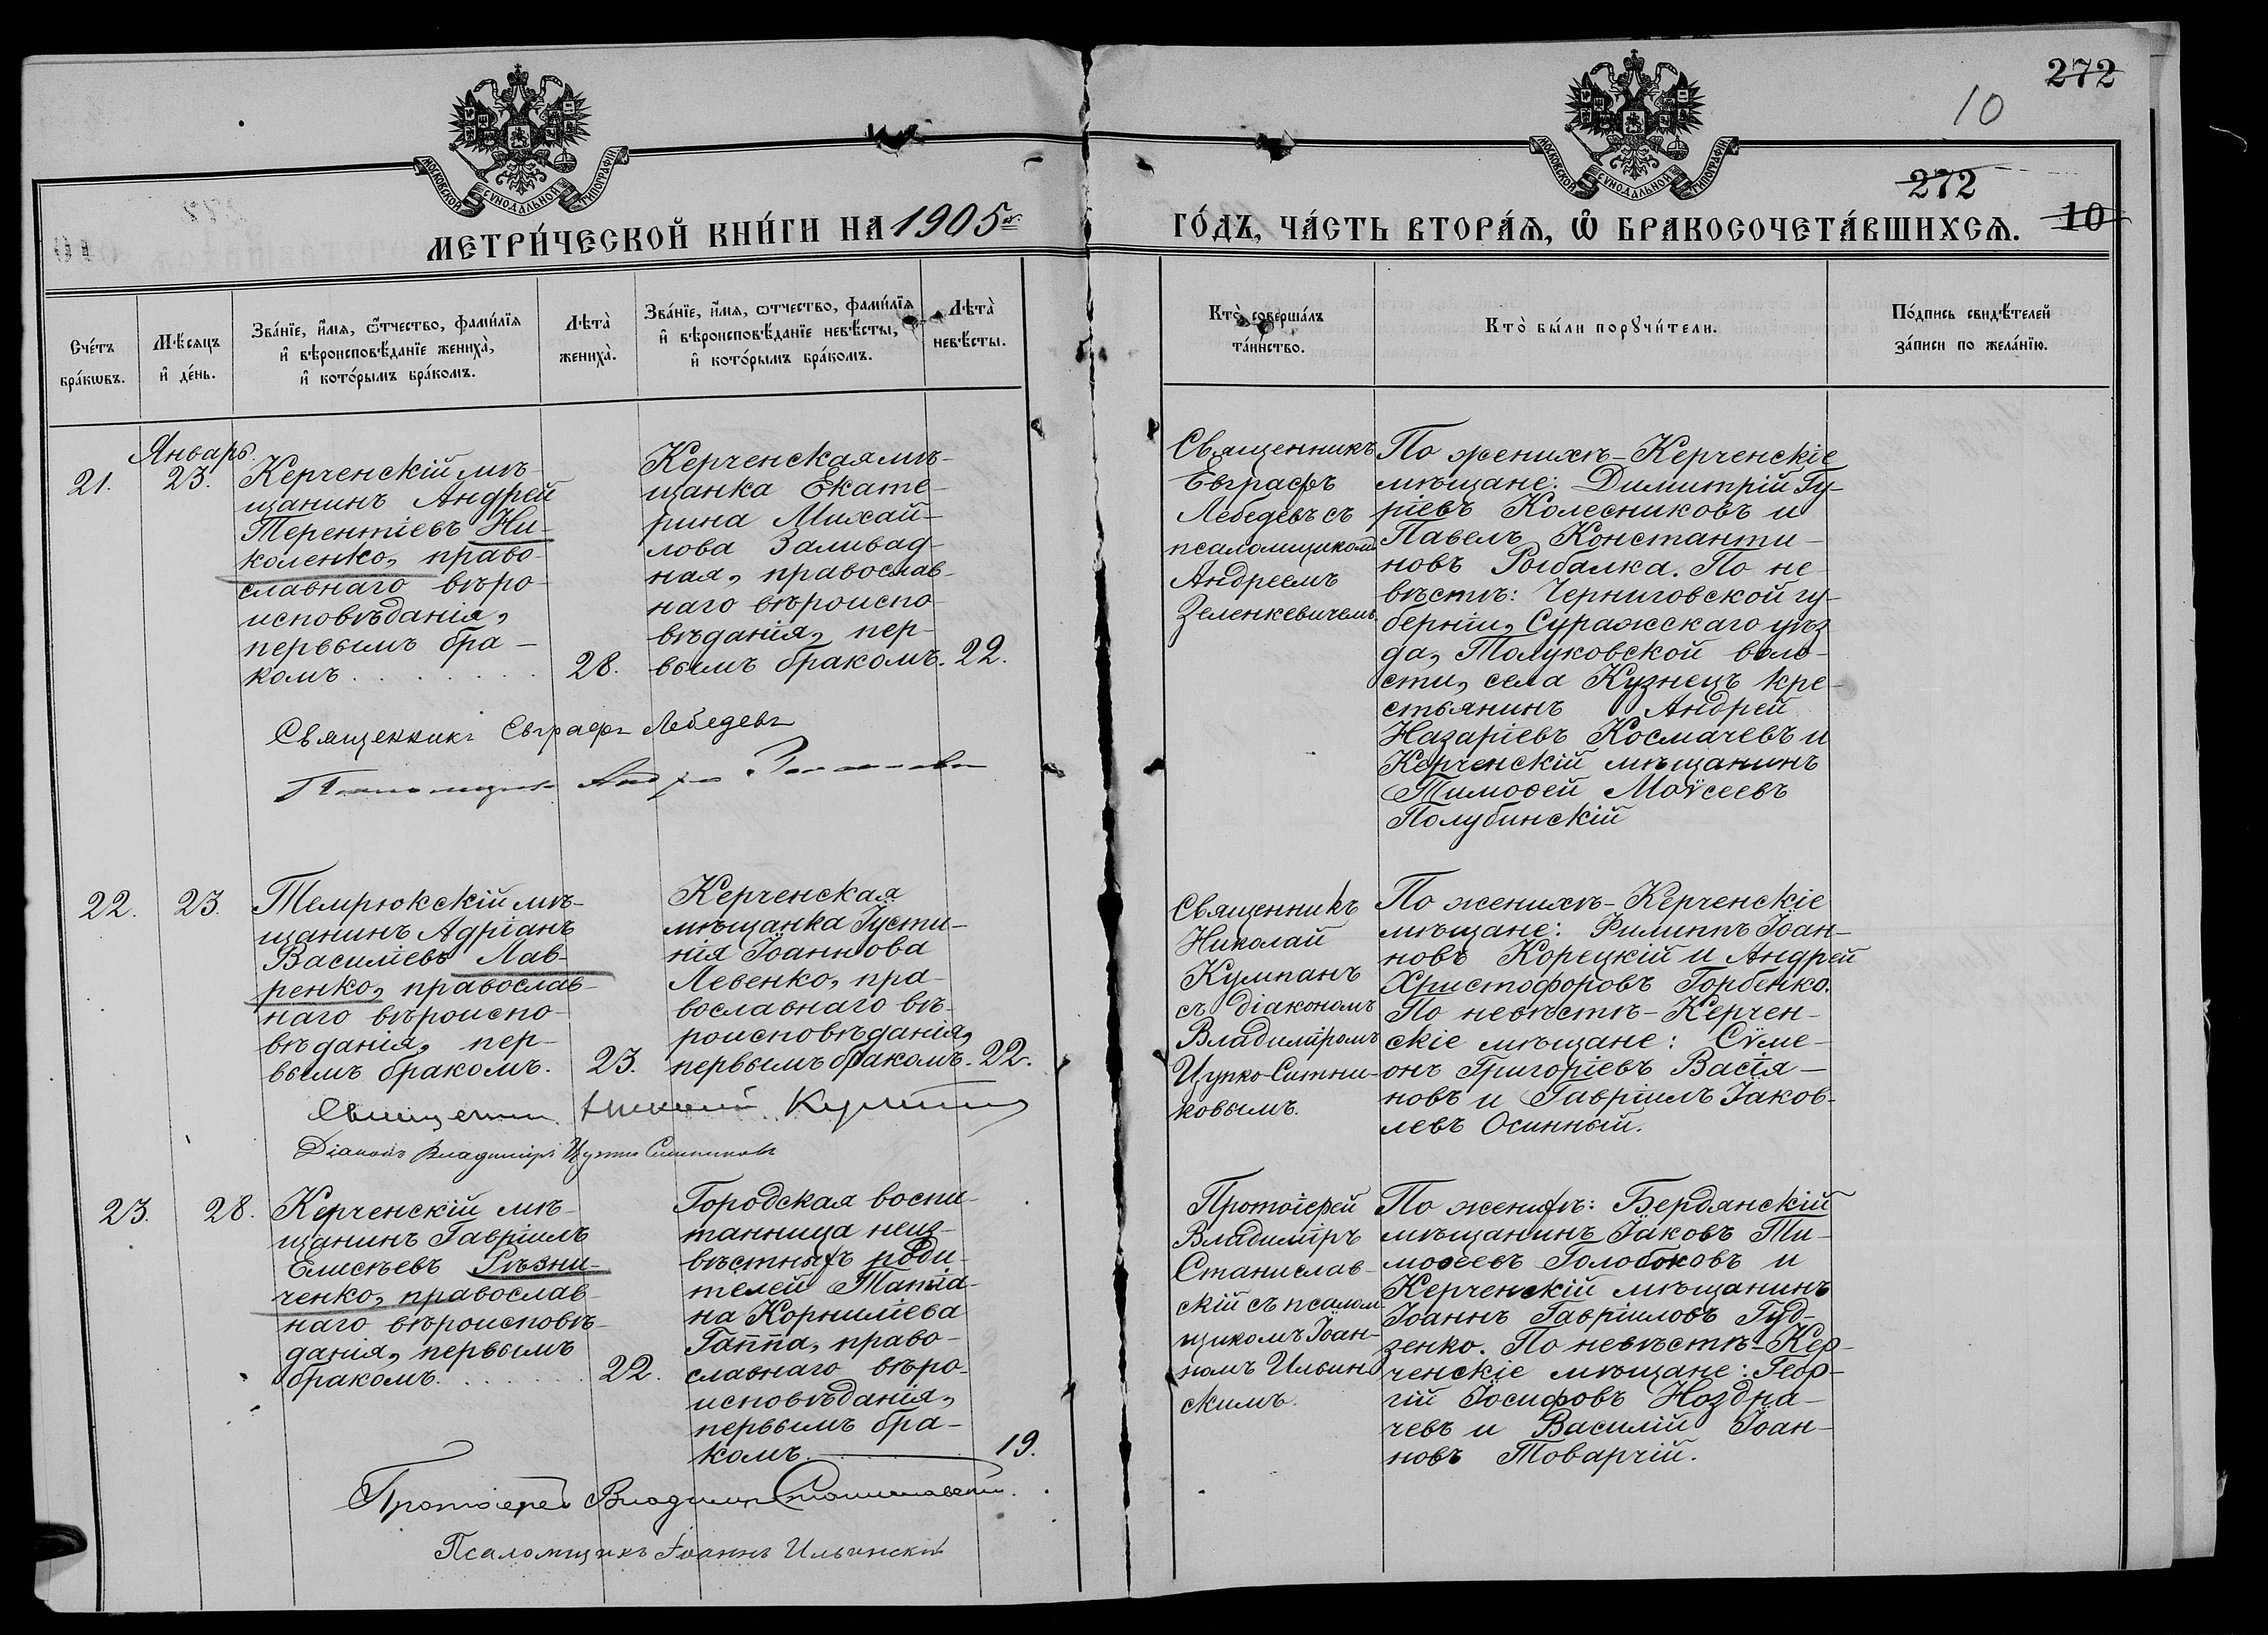 272
10
МОСКОВСКОЙ СѴНОДАЛЬНОЙ ТИПОГРАФІИ
МОСКОВСКОЙ СѴНОДАЛЬНОЙ ТИПОГРАФІИ
272
МЕТРИ́ЧЕСКОЙ КНИ́ГИ НА 1905 г.
ГО́ДЪ, ЧА́СТЬ ВТОРА́Ѧ, Ѽ БРАКОСОЧЕТА́ВШИХСѦ.
10
Сче́тъ
бра́кѡвъ.
Мѣ́сѧцъ
и҆ де́нь.
Зва́нїе, и҆́мѧ, ѻ҆́тчество, фами́лїѧ
и҆ вѣроисповѣ́данїе женихà,
и҆ кото́рымъ бра́комъ.
Лѣтà
женихà.
Зва́нїе, и҆́мѧ, ѻ҆тчество, фами́лїѧ
и҆ вѣроисповѣ́данїе невѣ́сты,
и҆ кото́рымъ бра́комъ.
Лѣтà
невѣ́сты.
Ктò соверша́лъ
та́инство.
Ктò бы́ли порꙋчи́тели.
По́дпись свидѣ́телей
за́писи по жела́нїю.
Январь.
21.
23.
Керченскій мѣ-
щанинъ Андрей
Терентіевъ Ни-
коленко, право-
славнаго вѣро-
исповѣданія,
первымъ бра-
комъ
28.
Керченская мѣ-
щанка Екате-
рина Михай-
лова Заливад-
ная, православ-
наго вѣроиспо-
вѣданія, пер-
вымъ бракомъ.
22.
Священникъ
Евграфъ
Лебедевъ съ
псаломщикомъ
Андреемъ
Зеленкевичемъ.
По женихѣ - Керченскіе
мѣщане: Димитрій Гу-
ріевъ Колесниковъ и
Павелъ Константи-
новъ Рыбалка. По не-
вѣстѣ: Черниговской гу-
берніи, Суражскаго уѣз-
да, Полуковской воло-
сти, села Кузнецъ кре-
стьянинъ Андрей
Назаріевъ Космачевъ и
Керченскій мѣщанинъ
Тимоѳей Моѵсеевъ
Полубинскій
Священникъ Евграфъ Лебедевъ
22.
23.
Темрюкскій мѣ-
щанинъ Адріанъ
Василіевъ Лав-
ренко, православ-
наго вѣроиспо-
вѣданія, пер-
вымъ бракомъ.
23.
Керченская
мѣщанка Іусти-
нія Іоаннова
Левенко, пра-
вославнаго вѣ-
роисповѣданія,
первымъ бракомъ.
22.
Священникъ
Николай
Кумпанъ
съ діакономъ
Владиміромъ
Цупко-Ситни-
ковымъ.
По женихѣ - Керченскіе
мѣщане: Филиппъ Іоан-
новъ Корецкій и Андрей
Христофоровъ Горбенко.
По невѣстѣ - Керчен-
скіе мѣщане: Сѵме-
онъ Григоріевъ Васія-
новъ и Гавріилъ Іаков-
левъ Осинный.
Священникъ Николай Кумпанъ
Діаконъ Владиміръ Цупко Ситниковъ
23.
28.
Керченскій мѣ-
щанинъ Гавріилъ
Елисѣевъ Рѣзни-
ченко, православ-
наго вѣроисповѣ-
данія, первымъ
бракомъ
22.
Городская воспи-
танница неиз-
вѣстныхъ роди-
телей Татіа-
на Корниліева
Гаппа, право-
славнаго вѣро-
исповѣданія,
первымъ бра-
комъ.
19.
Протоіерей
Владиміръ
Станислав-
скій съ псалом-
щикомъ Іоан-
номъ Ильин-
скимъ.
По женихѣ: Бердянскій
мѣщанинъ Іаковъ Ти-
моѳеевъ Голобоковъ и
Керченскій мѣщанинъ
Іоаннъ Гавріиловъ Гуд-
зенко. По невѣстѣ - Кер-
ченскіе мѣщане: Геор-
гій Іосифовъ Ноздра-
чевъ и Василій Іоан-
новъ Товарчій.
Протоіерей Владиміръ Станиславскій.
Псаломщикъ Іоаннъ Ильинскій